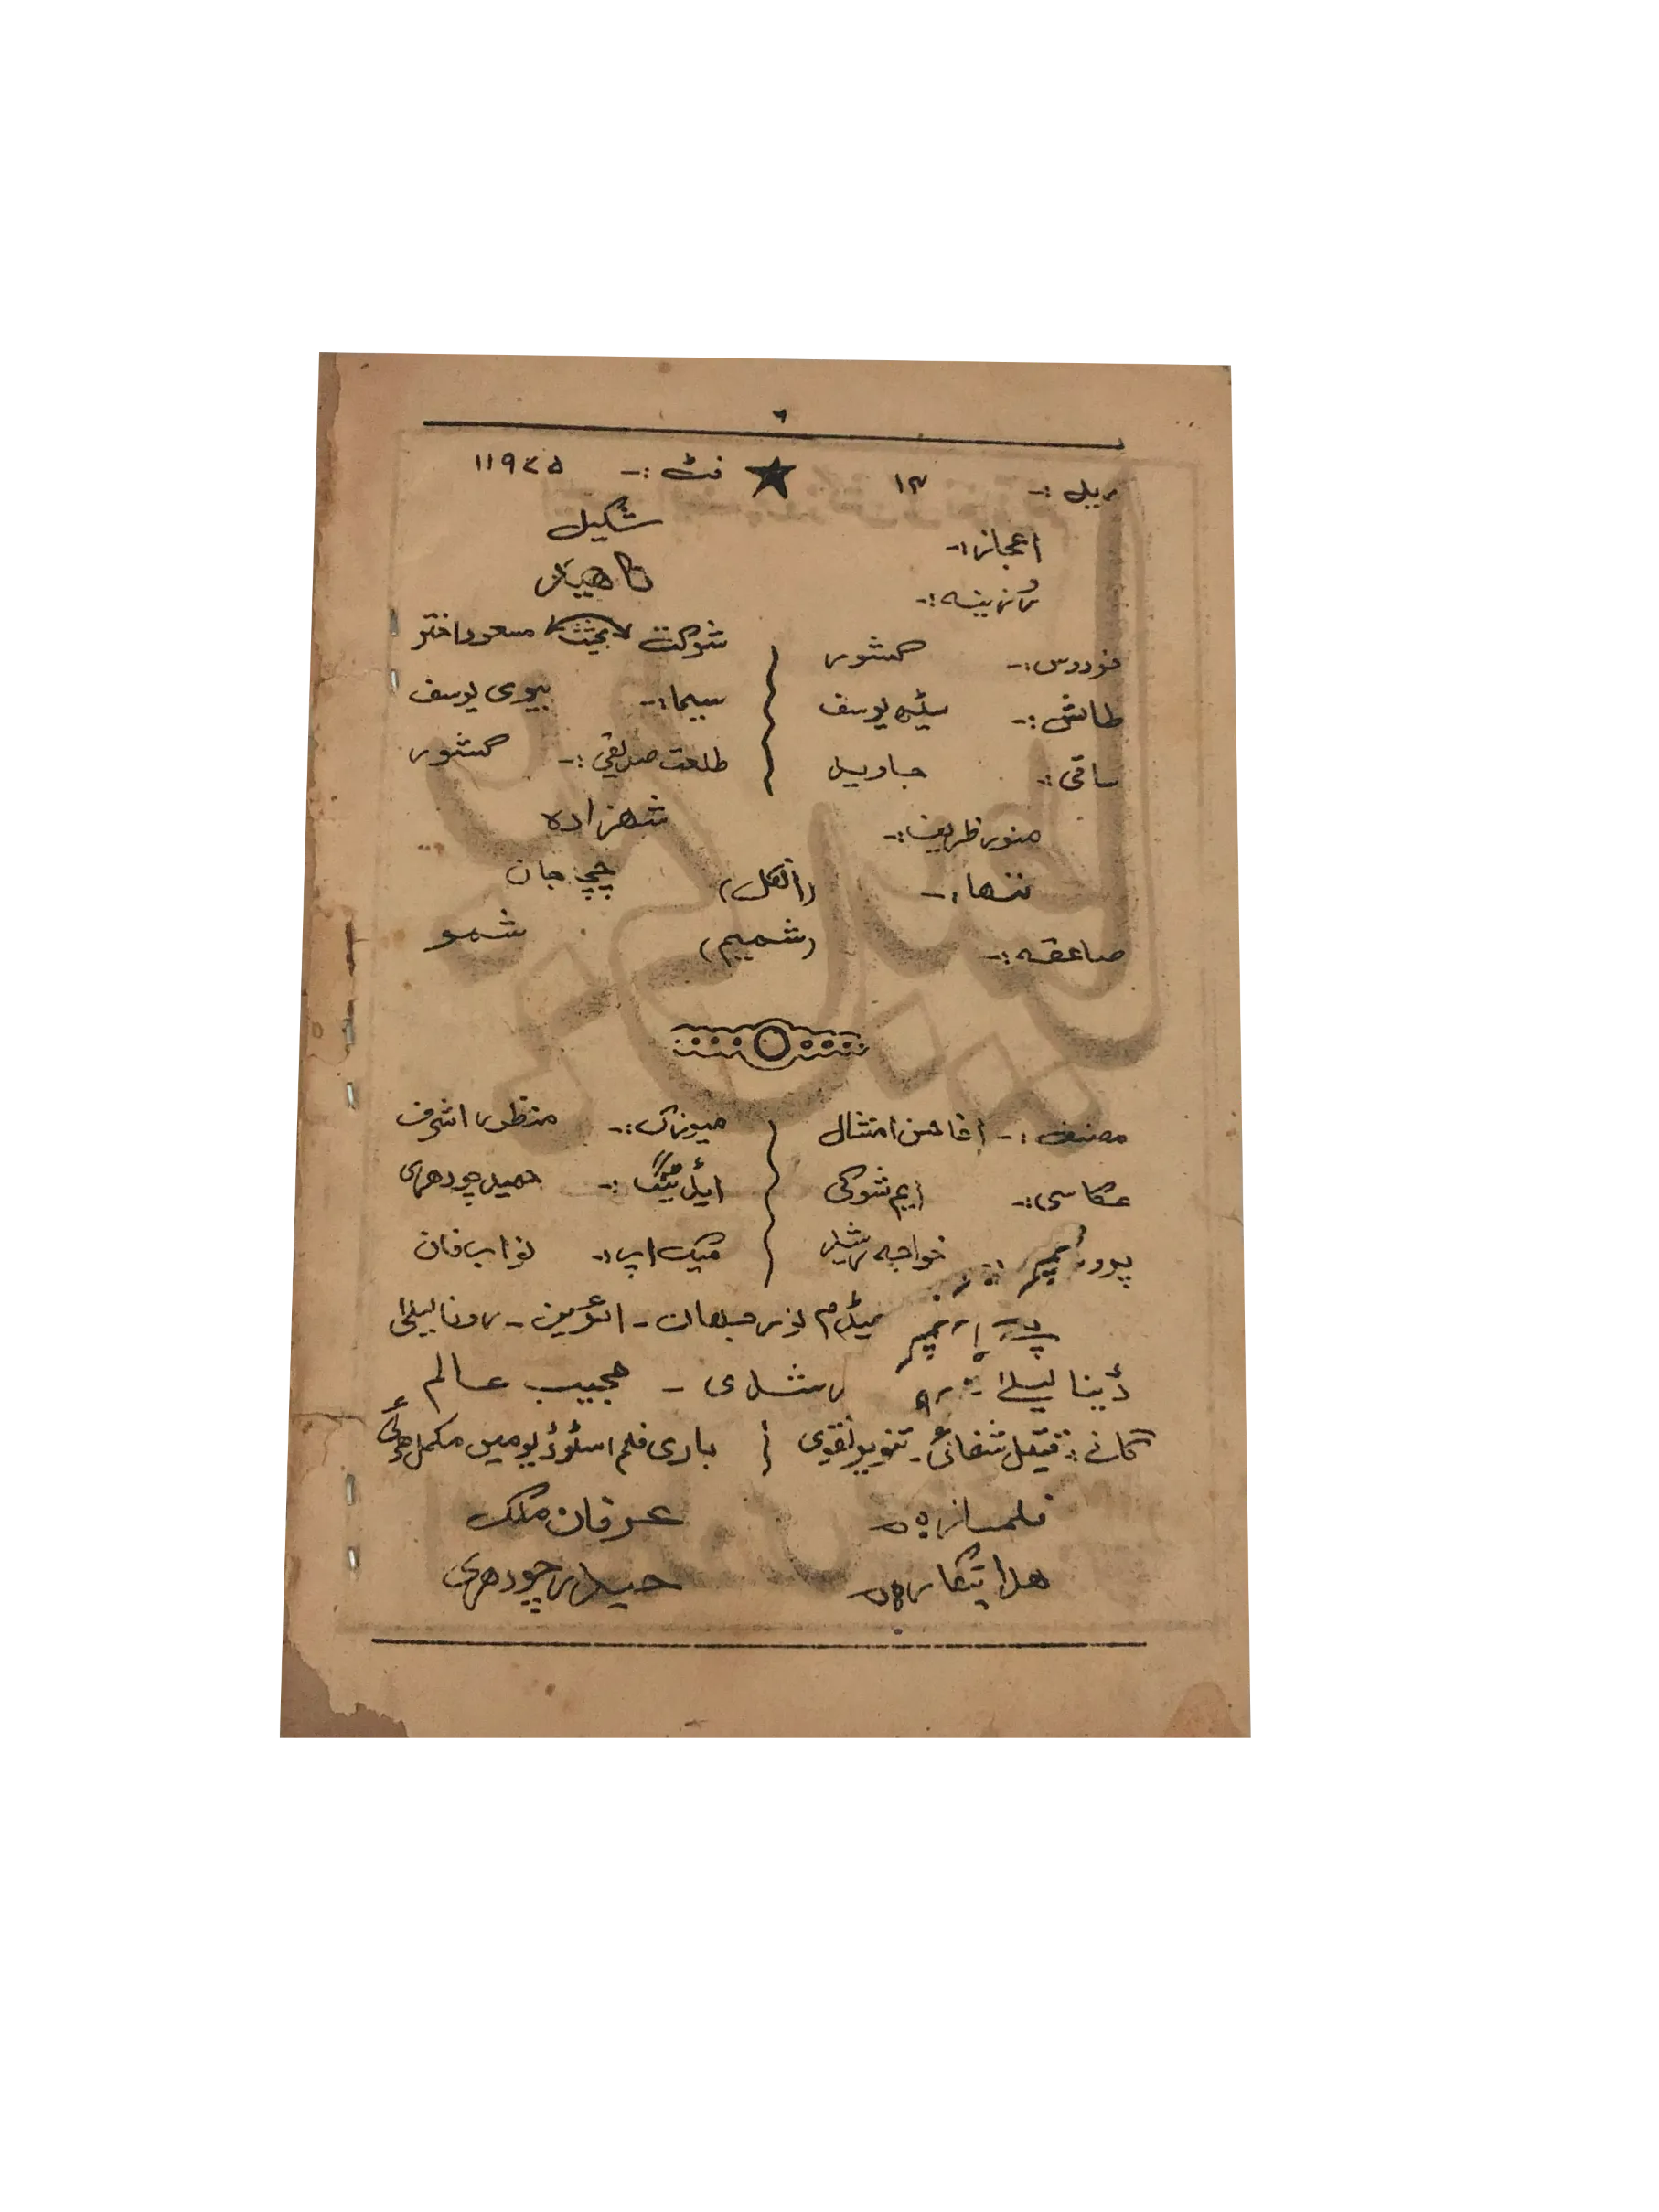 ۶
ریل :- ۱۴ فٹ :- ۱۱۹۷۵
اعجاز :- شکیل
روزینہ :- ناھید
فردوس :- کشور شوکت مسعود اختر
طالش :- سیٹھ یوسف سیما :- بیوی یوسف
ساقی :- جاوید طلعت صدیقی :- کشور
منور ظریف :- شھزادہ
ننھا :- (انکل) چچی جان
صاعقہ :- (شمیم) شمو
مصنف :- آغا حسن امتثال میوزک :- منظور اشرف
عکاسی :- ایم شوکی ایڈیٹنگ :- حمید چودھری
خواجہ رشید میک اپ :- نواب خان
میڈم نور جہاں - آئرین - رونا لیلیٰ
دینا لیلیٰ رشدی - مجیب عالم
گانے :- قتیل شفائی - تنویر نقوی باری فلم اسٹوڈیو میں مکمل ھوئی
فلمساز :- عرفان ملک
ھدایتکار :- حیدر چودھری